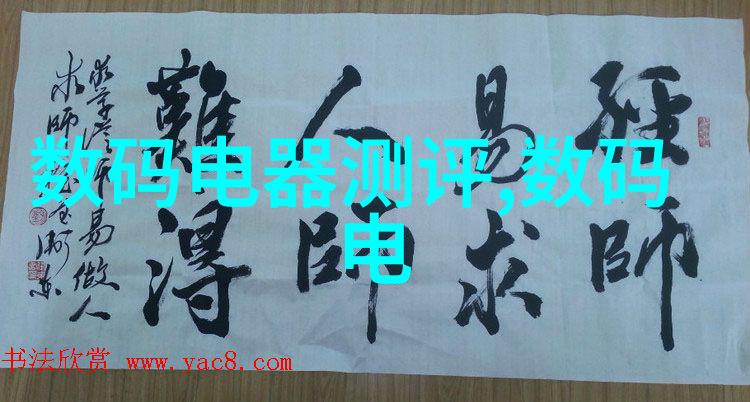 經師
易求
人師
難得
易做人
求師
数码电器测评,数码
电
书法欣赏 www.yac8.com